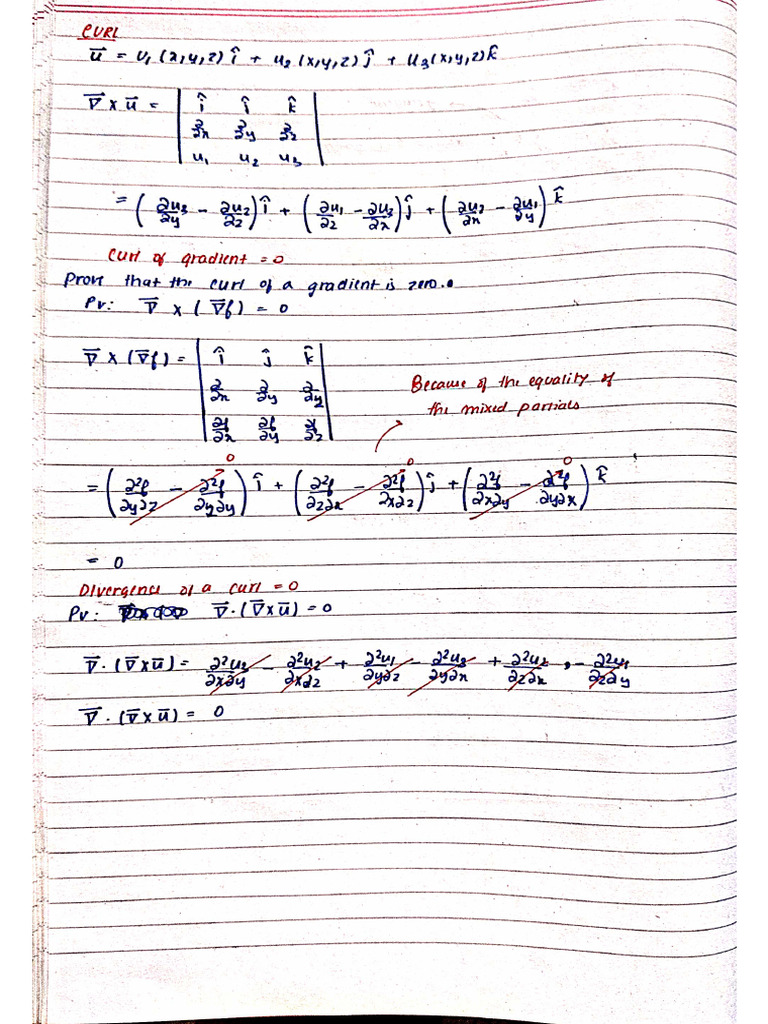 CURL
u⃗ = u₁(x,y,z) î + u₂(x,y,z) ĵ + u₃(x,y,z) k̂
∇⃗ × u⃗ = | î ĵ k̂ |
| ∂/∂x ∂/∂y ∂/∂z |
| u₁ u₂ u₃ |
= (∂u₃/∂y − ∂u₂/∂z) î + (∂u₁/∂z − ∂u₃/∂x) ĵ + (∂u₂/∂x − ∂u₁/∂y) k̂
Curl of gradient = 0
Prove that the curl of a gradient is zero.
Pv: ∇⃗ × (∇⃗f) = 0
∇⃗ × (∇⃗f) = | î ĵ k̂ |
| ∂/∂x ∂/∂y ∂/∂z |
| ∂f/∂x ∂f/∂y ∂f/∂z |
Because of the equality of
the mixed partials
0 0 0
= (∂²f/∂y∂z − ∂²f/∂y∂y) î + (∂²f/∂z∂x − ∂²f/∂x∂z) ĵ + (∂²f/∂x∂y − ∂²f/∂y∂x) k̂
= 0
Divergence of a curl = 0
Pv: ∇⃗ · (∇⃗ × u⃗) = 0
∇⃗ · (∇⃗ × u⃗) = ∂²u₃/∂x∂y − ∂²u₂/∂x∂z + ∂²u₁/∂y∂z − ∂²u₃/∂y∂x + ∂²u₂/∂z∂x − ∂²u₁/∂z∂y
∇⃗ · (∇⃗ × u⃗) = 0